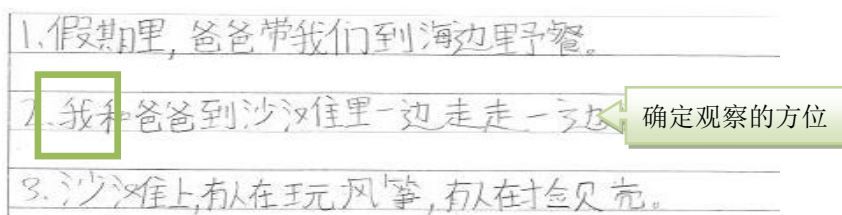 1、假期里,爸爸带我们到海边野餐。
2、我和爸爸到沙滩里一边走走一边
确定观察的方位
3、沙滩上,有人在玩风筝,有人在捡贝壳。